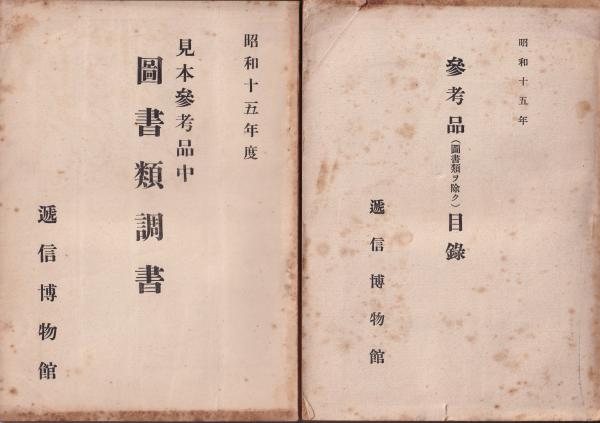 昭和十五年度
見本參考品中
圖書類調書
遞信博物館
昭和十五年
參考品(圖書類ヲ除ク)目錄
遞信博物館